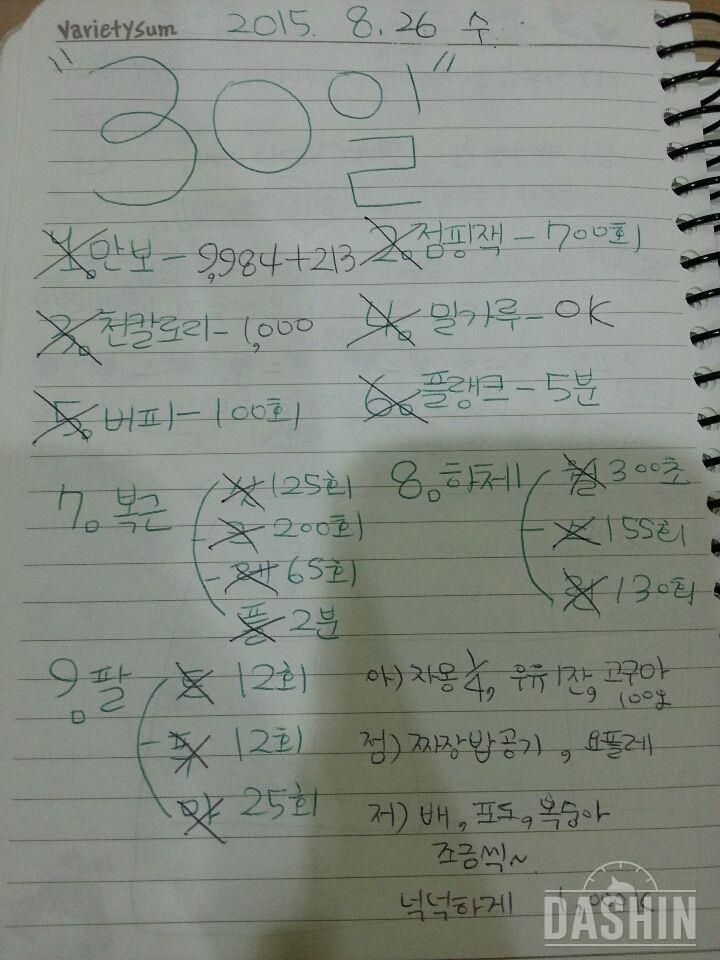 varietysum 2015. 8. 26 수
"30일"
1. 만보 - 9,984+213 2. 점핑잭 - 700회
3. 천칼로리 - 1,000 4. 밀가루 - OK
5. 버피 - 100회 6. 플랭크 - 5분
7. 복근 8. 하체
싯 125회 월 300초
크 200회 스 155회
레 65회 런 130회
플 2분
9. 팔
12회 아) 자몽 1/4, 우유 1잔, 고구마 100g
푸 12회 점) 짜장밥공기, 요플레
아 25회 저) 배, 포도, 복숭아
조금씩~
넉넉하게 1,000K
DASHIN